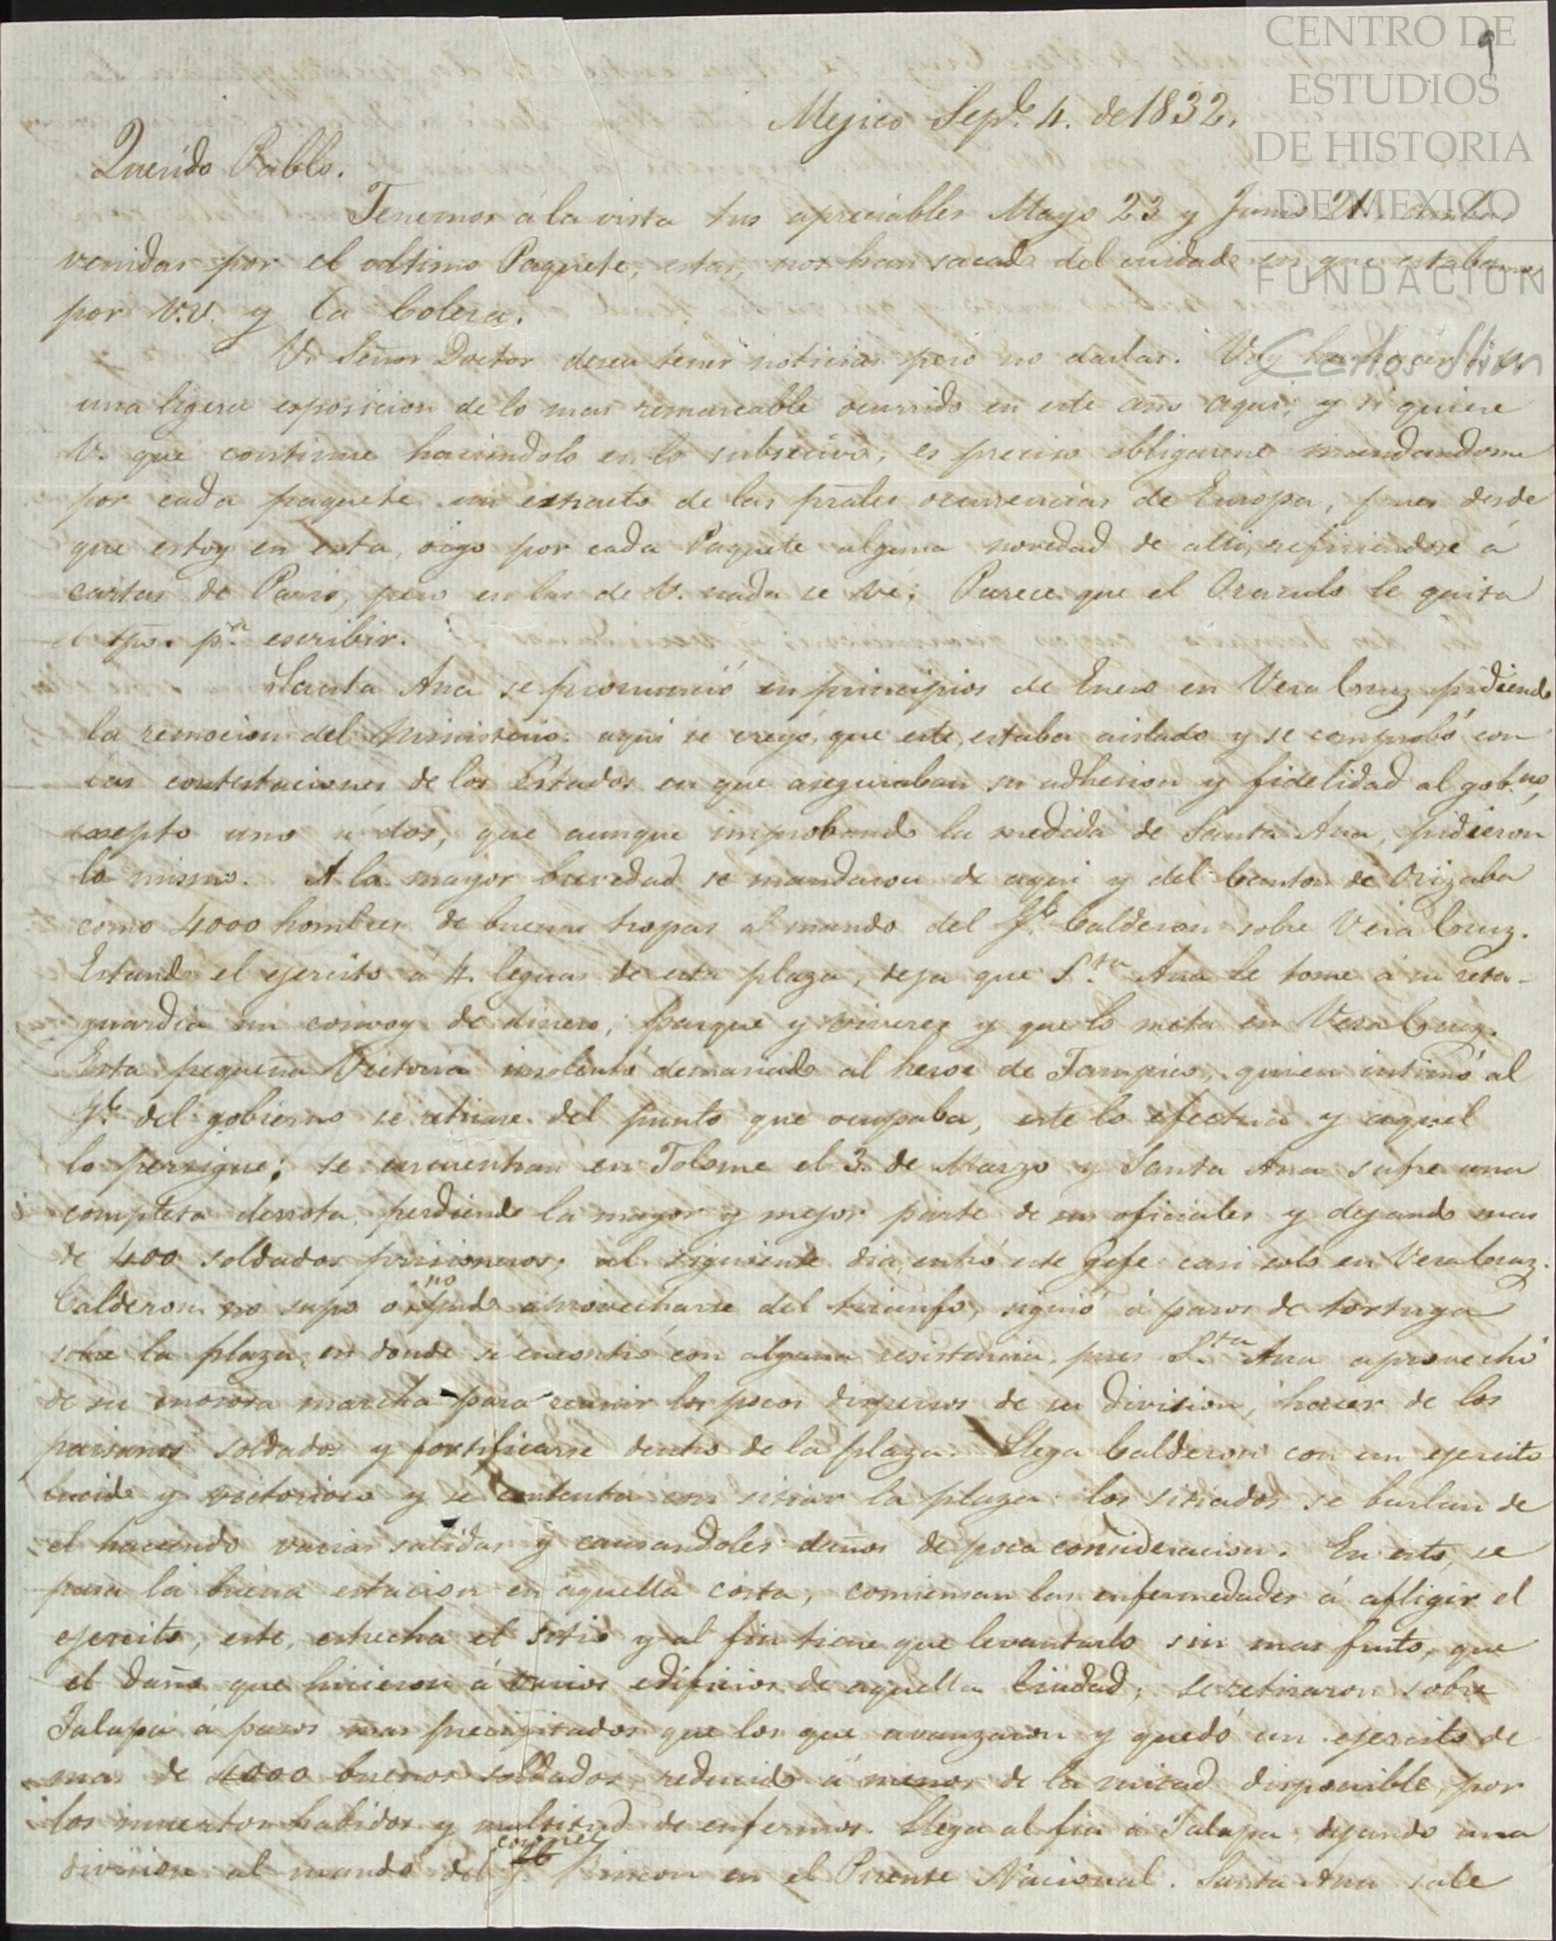 CENTRO DE
ESTUDIOS
DE HISTORIA
DE MEXICO
FUNDACION
Carlos Slim
9
Mejico Sepe. 4. de 1832.
Querido Pablo.
Tenemos á la vista tus apreciables Mayo 23 y Junio 21.
venidas por el ultimo Paquete, estas, nos han sacado del cuidado en que estabamos
por V.V. y la Colera.
V. Señor Doctor desea tener noticias pero no darlas. Voy
una ligera exposicion de lo mas remarcable ocurrido en este año aqui; y si quiere
V. que continue haciendolo en lo subsecivo, es preciso obligarme mandandome
por cada paquete un extracto de las prales ocurrencias de Europa, pues desde
que estoy en esta, oigo por cada Paquete alguna novedad de alli, refiriendose á
cartas de Paris, pero en las de V. nada se vé; Parece que el Oraculo le quita
el tpo. pa. escribir.
Santa Ana se pronunció en principios de Enero en Vera Cruz pidiendo
la remocion del Ministerio: aqui se creyó, que este, estaba aislado y se comprobó con
las contestaciones de los Estados en que aseguraban su adhesion y fidelidad al gobno,
exepto uno u dos, que aunque improbando la medida de Santa Ana, pidieron
lo mismo. A la mayor brevedad se mandaron de aqui y del Canton de Orizaba
como 4000 hombres de buenas tropas al mando del Jl. Calderon sobre Vera Cruz.
Estando el ejercito á 4. leguas de esta plaza, deja que Sta. Ana le tome á su reta-
guardia un convoy de dinero, parque y viveres y que lo meta en Vera Cruz.
Esta pequeña Victoria insolentó demaciado al heroe de Tampico, quien intimó al
Jl. del gobierno se retirase del punto que ocupaba, este lo efectua y aquel
lo persigue; se encuentran en Tolome el 3. de Marzo y Santa Ana sufre una
completa derrota, perdiendo la mayor y mejor parte de sus oficiales y dejando mas
de 400 soldados prisioneros; al siguiente dia, entró este Gefe casi solo en Vera Cruz.
Calderon no supo o no pudo aprovecharse del triunfo, siguió á pasos de tortuga
sobre la plaza, en donde se encontró con alguna resistencia, pues Sta. Ana aprovechó
de su morosa marcha para reunir los pocos dispersos de su division, hacer de los
paisanos soldados y fortificarse dentro de la plaza. Llega Calderon con un ejercito
lucido y victorioso y se contenta con sitiar la plaza: los sitiados se burlan de
el haciendo varias salidas y causandoles daños de poca consideracion. En esto, se
pasa la buena estacion en aquella costa, comiensan las enfermedades á afligir el
ejercito, este, estrecha el sitio y al fin tiene que levantarlo sin mas fruto, que
el daño que hicieron á varios edificios de aquella Ciudad; se retiraron sobre
Jalapa á pasos mas precipitados que los que avanzaron y quedó un ejercito de
mas de 4000 buenos soldados, reducido á menos de la mitad disponible, por
los muertos habidos y multitud de enfermos. Llega al fin á Jalapa dejando una
division al mando del coronel Rincon en el Puente Nacional. Santa Ana sale